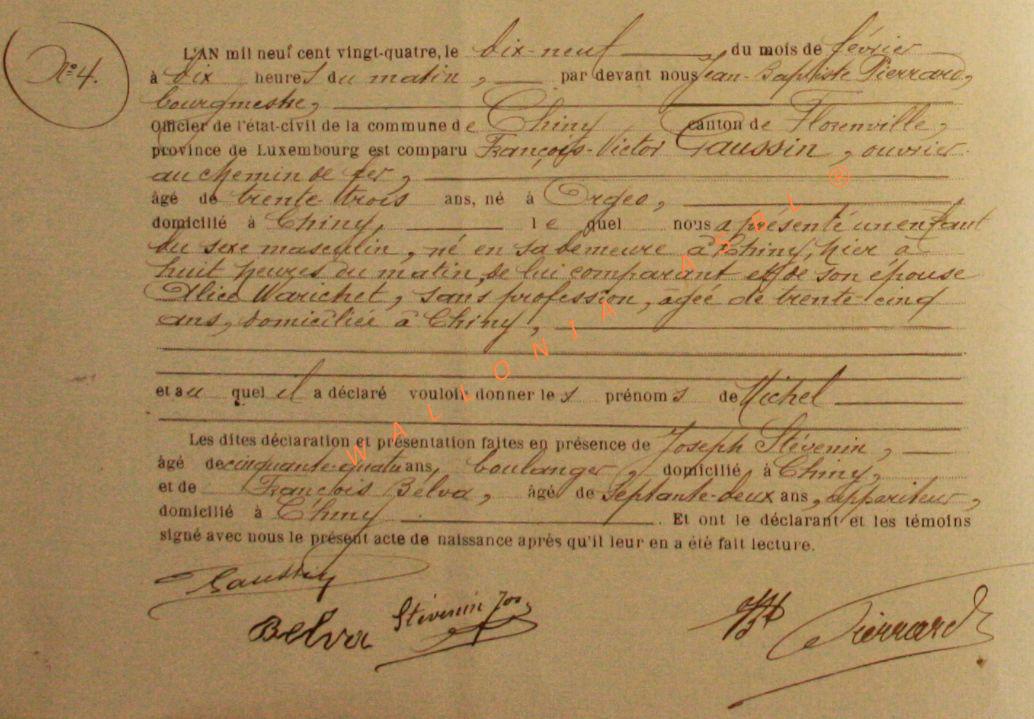 N° 4.
L'AN mil neuf cent vingt-quatre, le dix-neuf du mois de février
à dix heures du matin, par devant nous Jean-Baptiste Pierrard,
bourgmestre,
Officier de l'état-civil de la commune de Chiny canton de Florenville,
province de Luxembourg est comparu François-Victor Gaussin, ouvrier
au chemin de fer,
âgé de trente-trois ans, né à Orgeo,
domicilié à Chiny, le quel nous a présenté un enfant
du sexe masculin, né en sa demeure à Chiny, hier à
huit heures du matin, de lui comparant et de son épouse
Alice Warichet, sans profession, âgée de trente-cinq
ans, domiciliée à Chiny,
et au quel il a déclaré vouloir donner les prénoms de Michel
Les dites déclaration et présentation faites en présence de Joseph Stévenin,
âgé de cinquante-quatre ans, boulanger, domicilié à Chiny,
et de François Belva, âgé de septante-deux ans, appariteur,
domicilié à Chiny . Et ont le déclarant et les témoins
signé avec nous le présent acte de naissance après qu'il leur en a été fait lecture.
Gaussin
Belva Stévenin Jos JB Pierrard
WALLONIA ASBL ®